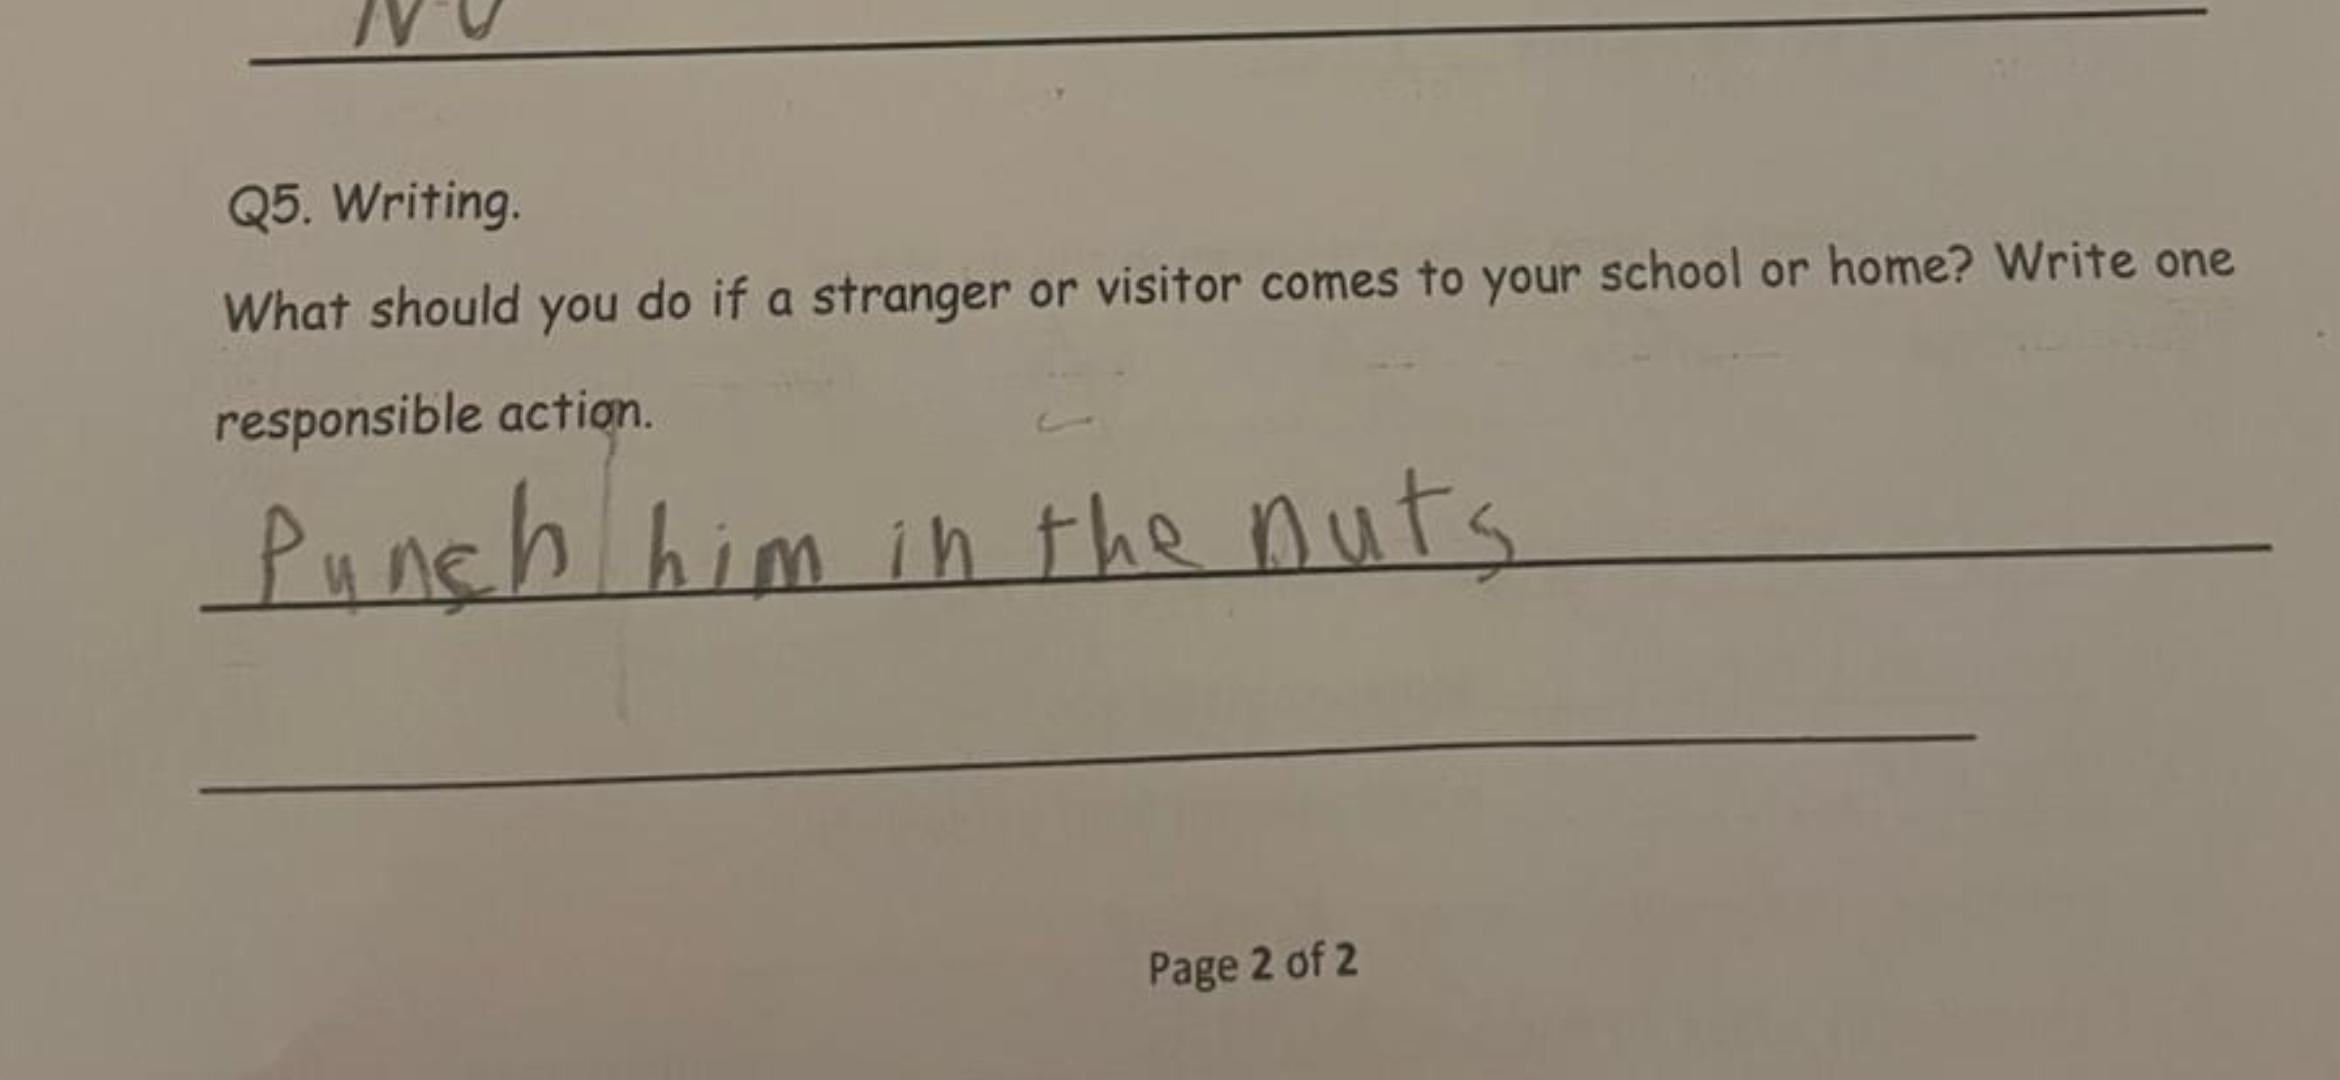 No
Q5. Writing.
What should you do if a stranger or visitor comes to your school or home? Write one
responsible action.
Punch him in the nuts
Page 2 of 2